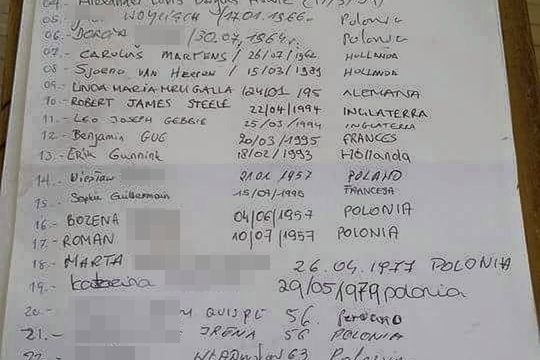 05.- WOJCIECH 17.01.1966. POLONIA
06.- DOROTA /30.07.1964. Polonia
07.- CAROLUS MARTENS / 26/07/1962 HOLLANDA
08.- Sjoerd VAN HERTEN / 15/03/1989 HOLLANDA
09.- LINDA MARIA MRUGALLA (24/01/195 ALEMANIA
10.- ROBERT JAMES STEELE 22/04/1994 INGLATERRA
11.- LEO JOSEPH GEBBIE 25/03/1994 INGLATERRA
12.- Benjamin GUE 20/03/1995 FRANCES
13.- Erik Gunnink 18/02/1993 Hollanda
14.- Wiesław 21.01.1957 POLAND
15.- Sophie Guillermain 15/09/1990 FRANCESA
16.- BOZENA 04/06/1957 POLONIA
17.- ROMAN 10/07/1957 POLONIA
18.- MARTA 26.04.1977 POLONIA
19.- katarina 29/05/1979 polonia
20.- QUISPE 56. peruano
21.- IRENA 56 POLONIA
22.- 63 Polonia